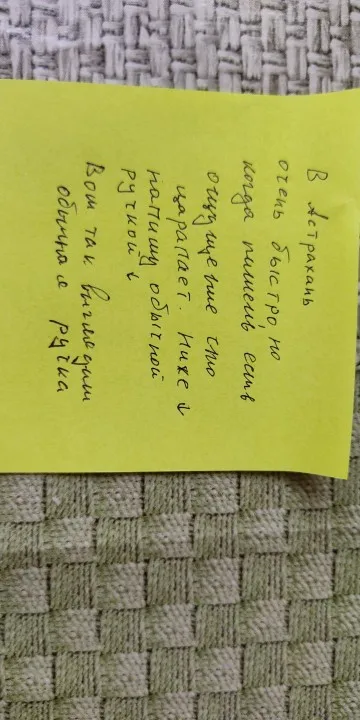 В Астрахань
очень быстро, но
когда пишешь есть
ощущение что
царапает. Ниже ↓
напишу обычной
ручкой ↓
Вот так выглядит
обычная ручка